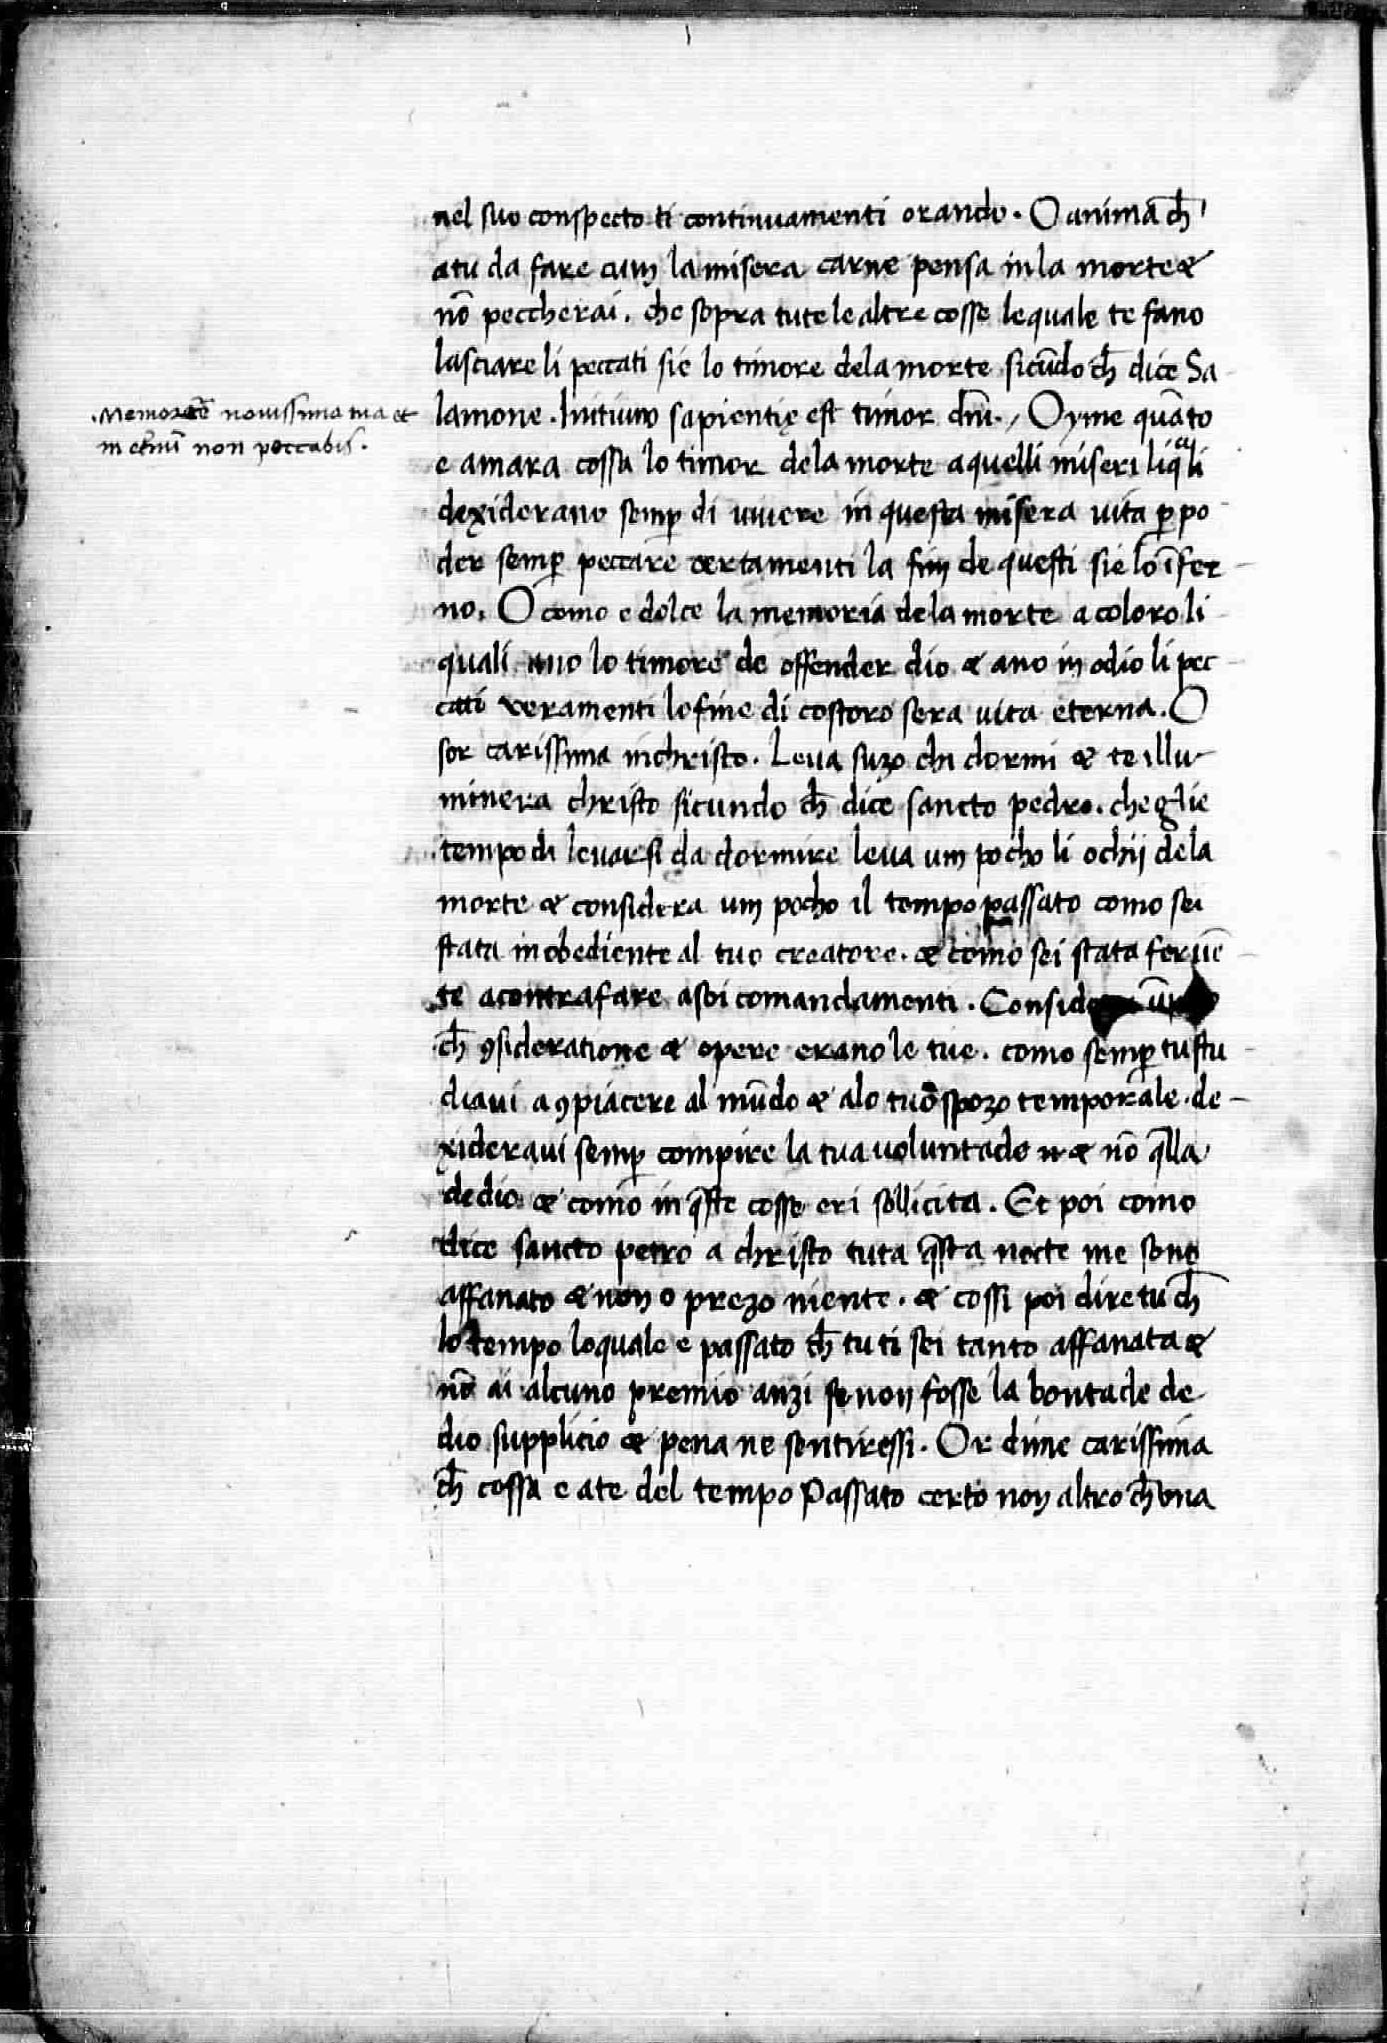 nel suo conspecto ti continuamenti orando. O anima ch̄
atu da fare cum la misera carne pensa in la morte &
nō peccherai. che sopra tute le altre cosse lequale te fano
lasciare li peccati sie lo timore dela morte sicūdo ch̄ dice Sa
.Memorare novissima tua &
in eternū non peccabis.
lamone. Initium sapientię est timor dn̄i. Oyme quāto
e amara cossa lo timor dela morte aquelli miseri liq̄li
dexiderano semꝑ di vivere in questa misera vita ꝑ po
der semꝑ peccare certamenti la fim de questi sie lo īfer
no. O como e dolce la memoria dela morte a coloro li
quali ano lo timore de offender dio & ano in odio li pec
cati veramenti lo fine di costoro sera vita eterna. O
sor carissima in christo. Leva suzo chi dormi & te illu
minera christo sicundo ch̄ dice sancto pedro. che glie
tempo di levarsi da dormire leva um pocho li ochij dela
morte & considera um pocho il tempo passato como sei
stata inobediente al tuo creatore. & como sei stata feruē
te acontrafare asoi comandamenti.
ch̄ ꝯsideratione & opere erano le tue. como semꝑ tu stu
diavi a ꝯpiacere al mūdo & alo tuo spozo temporale. de
xideravi semꝑ compire la tua voluntade & nō q̄lla
de dio & como in q̄ste cosse eri sollicita. Et poi como
dice sancto petro a christo tuta q̄sta nocte me sono
affanato & non o prezo niente. & cossi poi dire tu ch̄
lo tempo loquale e passato ch̄ tu ti sei tanto affanata &
nō ai alcuno premio anzi se non fosse la bontade de
dio supplicio & pena ne sentiressi. Or dime carissima
ch̄ cossa e ate del tempo Passato certo non altro ch̄ una